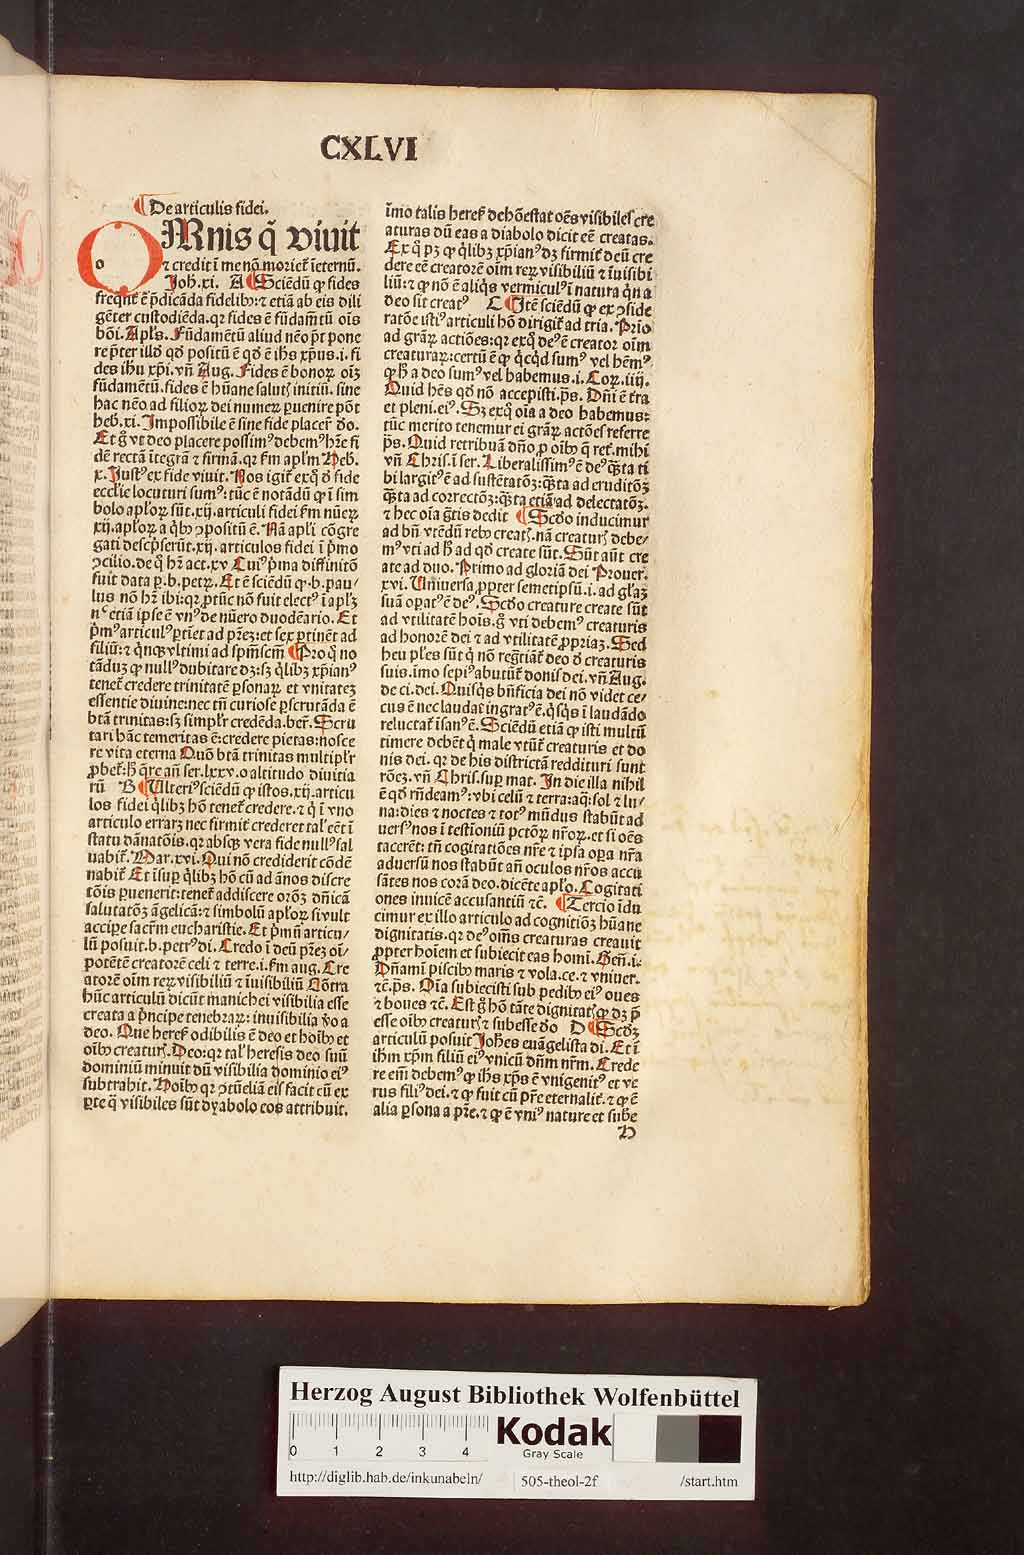 CXLVI
¶De articulis fidei.
OMnis q̃ viuit
⁊ credit ī me nō moriet̃ īeternũ.
Joh̃.xi. A ¶Sciẽdũ ꝙ fides
freq̃nt̃ ē p̃dicāda fidelibꝰ:⁊ etiā ab eis dili
gẽter custodiẽda.qꝛ fides ē fũdam̃tũ oīs
bōi.Apl̃s. Fũdamẽtũ aliud nēo p̃t pone
re p̃ter illď qď positũ ē qď ē ih̃s xp̃us.i.fi
des ih̃u xp̃i.vñ Aug. Fides ē bonoꝝ oīꝫ
fũdamẽtũ.fides ē hũane saluť initiũ. sine
hac nēo ad filioꝝ dei numeꝝ ꝑuenire pōt
heb̃.xi. Jmpossibile ē sine fide placer̃ ďo.
Et g̊ vt deo placere possimꝰ debemꝰ h̃re fi
dẽ rectā ītegrā ⁊ firmā.qꝛ fm apl̃m Heb̃.
x. Justꝰ ex fide viuit. Nos igit̃ exq̊ ď fide
eccl̃ie locuturi sumꝰ:tũc ē notādũ ꝙ ī sim
bolo apl̃oꝝ sũt.xij.articuli fidei fm nũeꝝ
xij.apl̃oꝝ a q̃bꝰ ꝯpositũ ē. Nā apl̃i cōgre
gati descp̃serũt.xij.articulos fidei ī p̃mo
ꝯcilio.de q̊ hr̃ act.xv Cuiꝰ p̃ma diffinitō
fuit data ꝑ.b.petꝝ. Et ē sciẽdũ ꝙ.b.pau/
lus nō hr̃ ibi:qꝛ ꝓtũc nō fuit electꝰ ī apl̃ꝫ
nᶜ etiā ipse ē vnꝰ de nũero duodẽario. Et
p̃mꝰ articulꝰ ꝑtiet̃ ad pr̃eꝫ:et sex ꝑtinẽt ad
filiũ:⁊ q̃nqꝫ vltimi ad sp̃m̃scm̃ ¶Pro q̊ no
tādũꝫ ꝙ nullꝰ dubitare dꝫ:sꝫ q̃libꝫ xp̃ianꝰ
tenet̃ credere trinitatẽ ꝑsonaꝝ et vnitateꝫ
essentie diuine:nec tñ curiose ꝑscrutāda ē
btā trinitas:sꝫ simpl̃r credẽda.ber̃. Scru
tari hāc temeritas ē:credere pietas:nosce
re vita eterna Quō btā trinitas multipl̃r
ꝓbet̃:h̃ q̃re añ ser.lxxv.o altitudo diuitia
rũ B ¶Ulteriꝰ sciẽdũ ꝙ istos.xij.articu
los fidei q̃libꝫ hō tenet̃ credere.⁊ q̃ ī vno
articulo errarꝫ nec firmit̃ crederet tal̃ eẽt ī
statu dānatōis.qꝛ absqꝫ vera fide nullꝰ sal
uabit̃. Mar.xvi. Qui nō crediderit cōdẽ
nabit̃ Et īsuꝑ q̃libꝫ hō cũ ad ānos discre
tōis ꝑuenerit:tenet̃ addiscere orōꝫ dñicā
salutatōꝫ āgelicā:⁊ simbolũ apl̃oꝝ si vult
accipe sacr̃m eucharistie. Et p̃mũ articu/
lũ posuit.b.petrꝰ di. Credo ī deũ pr̃eꝫ oī/
potẽtẽ creatorẽ celi ⁊ terre.i.fm aug. Cre
atorẽ oīm reꝝ visibiliũ ⁊ īuisibiliũ Cōtra
hũc articulũ dicũt manichei visibilia esse
creata a p̃ncipe tenebraꝝ: inuisibilia v̊o a
deo. Que heres̃ odibilis ē deo et hoībꝰ et
oībꝰ creatuꝵ. Deo:qꝛ tal̃ heresis deo suũ
dominiũ minuit dũ visibilia dominio eiꝰ
subtrahit. Hoībꝰ qꝛ ꝯtũeliā eis facit cũ ex
ꝑte q̃ visibiles sũt dyabolo eos attribuit.
īmo talis heres̃ dehōestat oẽs visibiles cre
aturas dũ eas a diabolo dicit eē creatas.
Ex q̊ pꝫ ꝙ q̃libꝫ xp̃ianꝰ dꝫ firmit̃ deũ cre
dere eē creatorẽ oīm reꝝ visibiliũ ⁊ īuisibi
liũ:⁊ ꝙ nō ē aliq̊s vermiculꝰ ī natura q̃n a
deo sit creatꝰ C ¶Itẽ sciẽdũ ꝙ ex ꝯside
ratōe istiꝰ articuli hō dirigit̃ ad tria. Prīo
ad gr̃aꝝ actiões:qꝛ exq̊ deꝰ ē creator oīm
creaturaꝝ:certũ ē ꝙ q̃cq̃d sumꝰ vel hẽmꝰ
ꝙ h̃ a deo sumꝰ vel habemus.i. Coꝝ.iiij.
Quid hẽs qď nō accepisti.p̃s. Dñi ē t̃ra
et pleni.eiꝰ. Sꝫ exq̊ oīa a deo habemus:
tũc merito tenemur ei gr̃aꝝ actões referre
p̃s. Quid retribuā dño ꝓ oībꝰ q̃ ret̃.mihi
vñ Chris.ī ser. Liberalissimꝰ ē deꝰ q̃sta ti
bi largitꝰ ē ad sustẽtatōꝫ:q̃sta ad eruditōꝫ
q̃sta ad correctōꝫ:q̃sta etiā ad delectatōꝫ.
⁊ hec oīa gr̃tis dedit ¶Scďo inducimur
ad bñ vtẽdũ rebꝰ creať.nā creatuꝵ debe/
mꝰ vti ad h̃ ad qď create sũt. Sũt aũt cre
ate ad duo. Primo ad gloriā dei Prouer.
xvi. Uniuersa ꝓpter semetipsũ.i.ad gl̃aꝫ
suā oꝑatꝰ ē deꝰ. Scďo creature create sũt
ad vtilitatẽ hoīs.g̊ vti debemꝰ creaturis
ad honorẽ dei ⁊ ad vtilitatẽ ꝓpriaꝫ. Sed
heu pl̃es sũt q̃ nō regr̃tiāt̃ deo ď creaturis
suis.īmo sepiꝰ abutũt̃ donis dei.vñ Aug.
de ci.dei. Quisq̃s bñficia dei nō videt ce/
cus ē nec laudat̃ ingratꝰ ē.q̃sq̃s ī laudādo
reluctat̃ īsanꝰ ē. Sciẽdũ etiā ꝙ isti multũ
timere debẽt q̃ male vtũt̃ creaturis et do
nis dei.qꝛ de his districtā reddituri sunt
rõeꝫ.vñ Chris.suꝑ mat. Jn die illa nihil
ē qď rñdeamꝰ:vbi celũ ⁊ terra:aq̃:sol ⁊ lu/
na:dies ⁊ noctes ⁊ totꝰ mũdus stabũt ad
uersꝰ nos ī testīoniũ pctōꝝ nr̃oꝝ.et si oẽs
tacerẽt: tñ cogitatiões nr̃e ⁊ ipsa oꝑa nr̃a
aduersũ nos stabũt añ oculos nr̃os accu
sātes nos corā deo.dicẽte apl̃o. Cogitati
ones inuicẽ accusantiũ ⁊c̃. ¶Tercio īdu
cimur ex illo articulo ad cognitōꝫ hũane
dignitatis.qꝛ deꝰ oīm̃s creaturas creauit
ꝓpter hoīem et subiecit eas homi. Geñ.i.
Dñamī piscibꝰ maris ⁊ vola.ce.⁊ vniuer.
⁊c̃.p̃s. Oīa subiecisti sub pedibꝰ eiꝰ oues
⁊ boues ⁊c̃. Est g̊ hō tāte dignitať ꝙ dꝫ p̃
esse oībꝰ creatuꝵ ⁊ subesse ďo D ¶Scďꝫ
articulũ posuit Joh̃es euāgelista di. Et ī
ih̃m xp̃m filiũ eiꝰ vnicũ dñm nr̃m. Crede
re em̃ debemꝰ ꝙ ih̃s xp̃s ē vnigenitꝰ et ve
rus filiꝰ dei.⁊ ꝙ fuit cũ pr̃e eternalit̃.⁊ ꝙ ē
alia ꝑsona a pr̃e.⁊ ꝙ ē vniꝰ nature et sub̃e
H
Herzog August Bibliothek Wolfenbüttel
0 1 2 3 4
Kodak
Gray Scale
http://diglib.hab.de/inkunabeln/ 505-theol-2f /start.htm